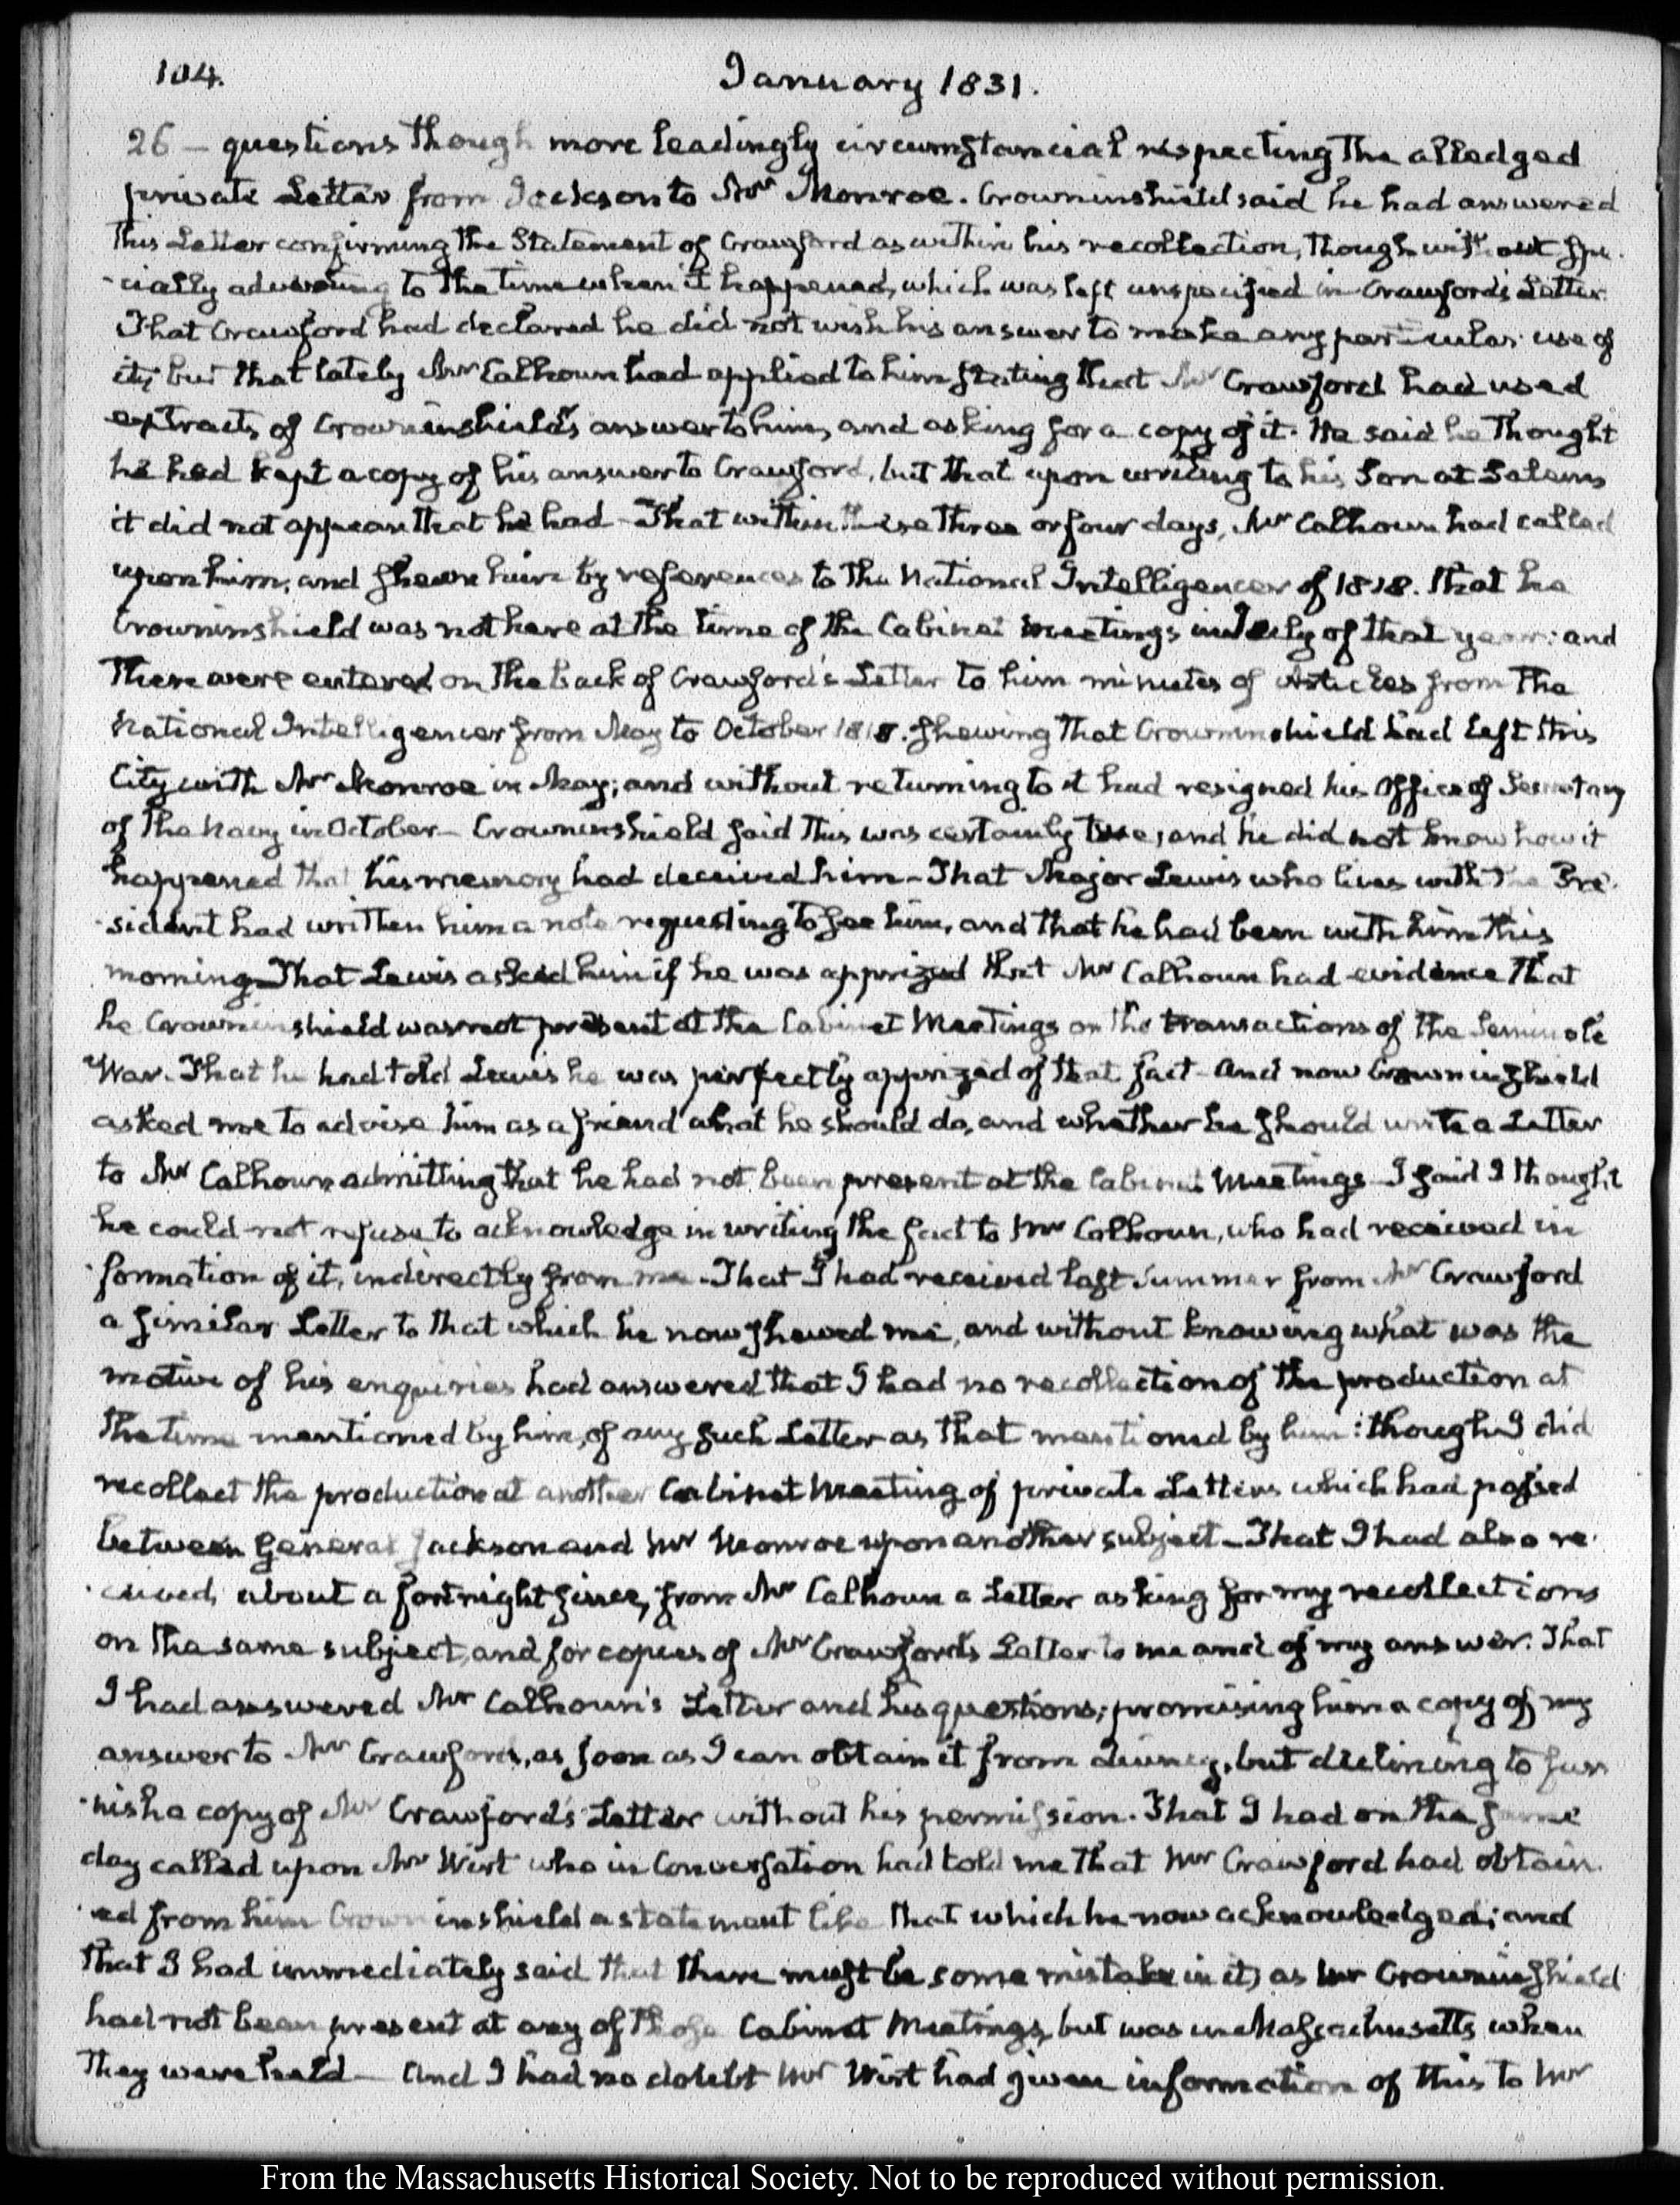 104.
January 1831.
26 — questions though more leadingly circumstancial respecting the alledged
private Letter from Jackson to Mr Monroe. Crowninshield said he had answered
this Letter confirming the Statement of Crawford as within his recollection, though without spe-
-cially adverting to the time when it happened, which was left unspecified in Crawford's Letter.
That Crawford had declared he did not wish his answer to make any particular use of
it; but that lately Mr Calhoun had applied to him stating that Mr Crawford had used
extracts of Crowninshield's answer to him, and asking for a copy of it. He said he thought
he had kept a copy of his answer to Crawford, but that upon writing to his Son at Salem
it did not appear that he had — That within these three or four days, Mr Calhoun had called
upon him, and shewn him by references to the National Intelligencer of 1818. that he
Crowninshield was not here at the time of the Cabinet meetings in July of that year: and
there were entered on the back of Crawford's Letter to him minutes of Articles from the
National Intelligencer from May to October 1818. shewing that Crowninshield had left this
City with Mr Monroe in May; and without returning to it had resigned his Office of Secretary
of the Navy in October — Crowninshield said this was certainly true, and he did not know how it
happened that his memory had deceived him — That Major Lewis who lives with the Pre-
-sident had written him a note requesting to see him, and that he had been with him this
morning — That Lewis asked him if he was apprized that Mr Calhoun had evidence that
he Crowninshield was not present at the Cabinet Meetings on the transactions of the Seminole
War. That he had told Lewis he was perfectly apprized of that fact — And now Crowninshield
asked me to advise him as a friend what he should do, and whether he should write a Letter
to Mr Calhoun admitting that he had not been present at the Cabinet Meetings — I said I thought
he could not refuse to acknowledge in writing the fact to Mr Calhoun, who had received in
-formation of it, indirectly from me — That I had received last Summer from Mr Crawford
a similar Letter to that which he now shewed me, and without knowing what was the
motive of his enquiries had answered that I had no recollection of the production at
the time mentioned by him, of any such Letter as that mentioned by him: though I did
recollect the production at another Cabinet Meeting of private Letters which had passed
between General Jackson and Mr Monroe upon another subject — That I had also re-
-ceived, about a fortnight since, from Mr Calhoun a Letter asking for my recollections
on the same subject, and for copies of Mr Crawford's Letter to me and of my answer. That
I had answered Mr Calhoun's Letter and his questions; promising him a copy of my
answer to Mr Crawford, as soon as I can obtain it from Quincy, but declining to fur
-nish a copy of Mr Crawford's Letter without his permission. That I had on the same
day called upon Mr Wirt who in Conversation had told me that Mr Crawford had obtain-
-ed from him Crowninshield a statement like that which he now acknowledged; and
that I had immediately said that there must be some mistake in it, as Mr Crowninshield
had not been present at any of those Cabinet Meetings, but was in Massachusetts when
they were held — And I had no doubt Mr Wirt had given information of this to Mr
From the Massachusetts Historical Society. Not to be reproduced without permission.